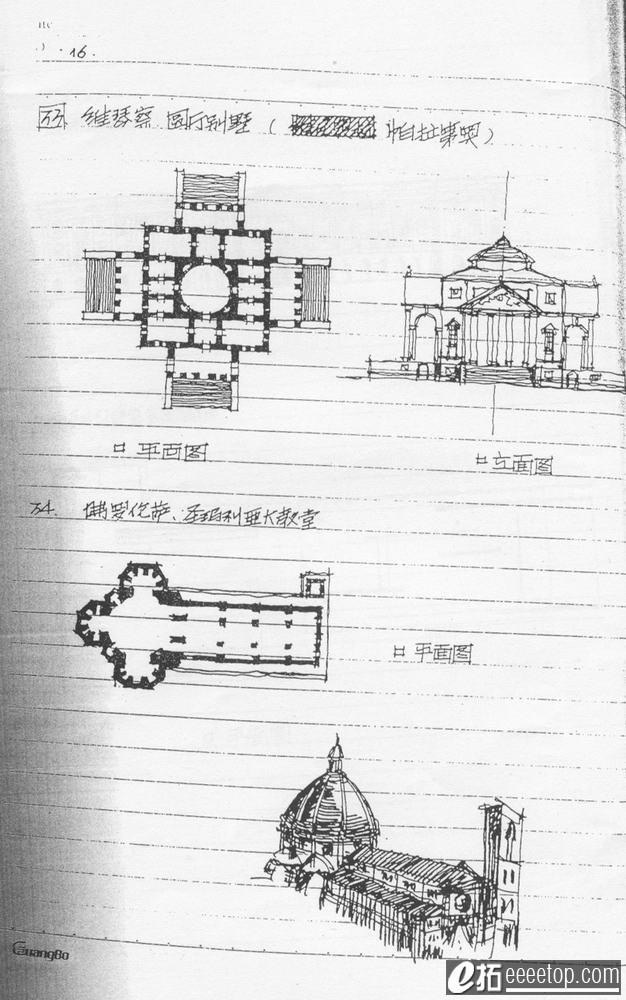 16.
33. 维琴察 圆厅别墅 (帕拉第奥)
口 平面图
口 立面图
34. 佛罗伦萨、圣玛利亚大教堂
口 平面图
GuangBo
e拓 eeeetop.com